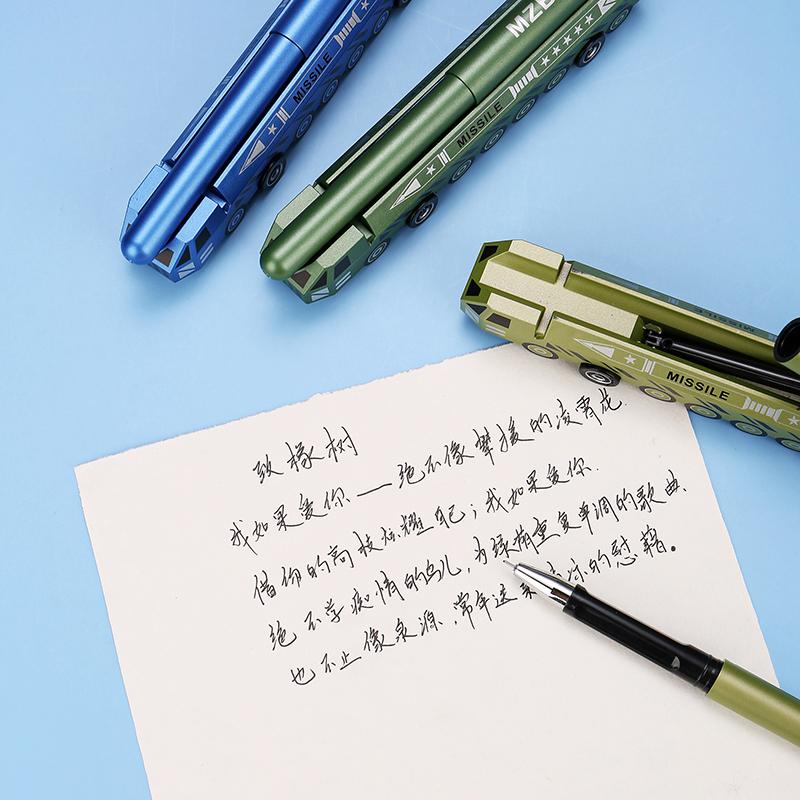 MISSILE
MZB
MISSILE
MISSILE
MISSILE
致橡树
我如果爱你——绝不像攀援的凌霄花
借你的高枝炫耀自己；我如果爱你.
绝不学痴情的鸟儿,为绿荫重复单调的歌曲.
也不止像泉源,常年送来 的慰藉。